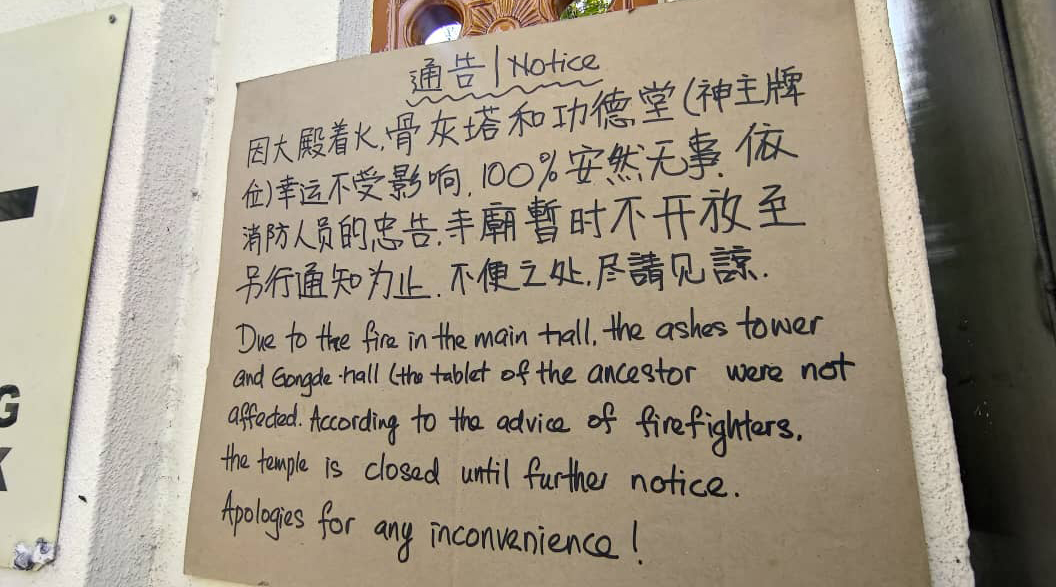 通告 | Notice
因大殿着火,骨灰塔和功德堂(神主牌
位)幸运不受影响,100%安然无事. 依
消防人员的忠告,丰廟暫时不开放至
另行通知为止. 不便之处,尽請见諒.
Due to the fire in the main hall, the ashes tower
and Gongde hall (the tablet of the ancestor were not
affected. According to the advice of firefighters,
the temple is closed until further notice.
Apologies for any inconvenience!
G
K